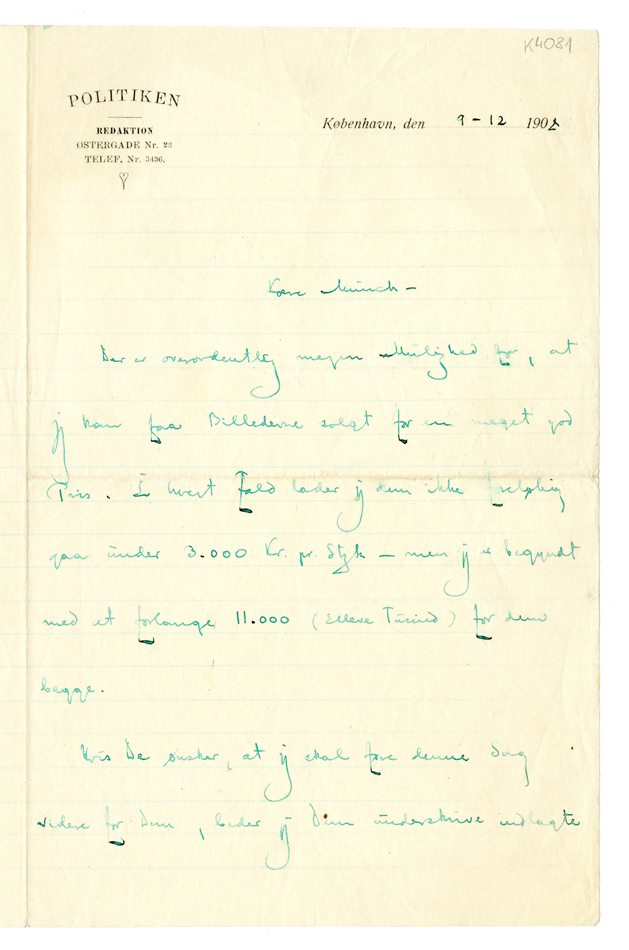 K4081
POLITIKEN
REDAKTION
ØSTERGADE Nr. 23
TELEF. Nr. 3436.
København, den 9-12 1908
Kære Munch –
Der er overordentlig megen Mulighed for, at
jeg kan faa Billederne solgt for en meget god
Pris. I hvert Fald lader jeg dem ikke foreløbig
gaa under 3.000 Kr. pr. Styk – men jeg er begyndt
med at forlange 11.000 (Elleve Tusind) for dem
begge.
Hvis De ønsker, at jeg skal føre denne Sag
videre for Dem, beder jeg Dem underskrive indlagte